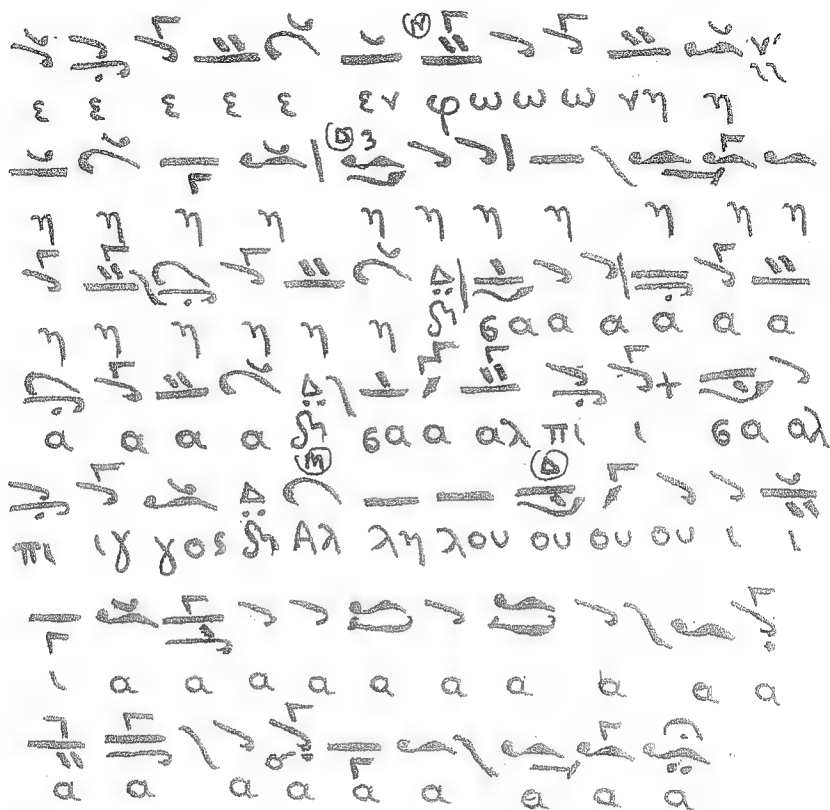 ε ε ε ε ε εν φω ω ω νη η
η η η η η η η η η η η
η η η η η η ϐα α α α α α
α α α α ϐα α αλ πι ι ϐα αλ
πι ιγ γος Αλ λη λου ου ου ου ι ι
ι α α α α α α α α α α
α α α α α α α α α